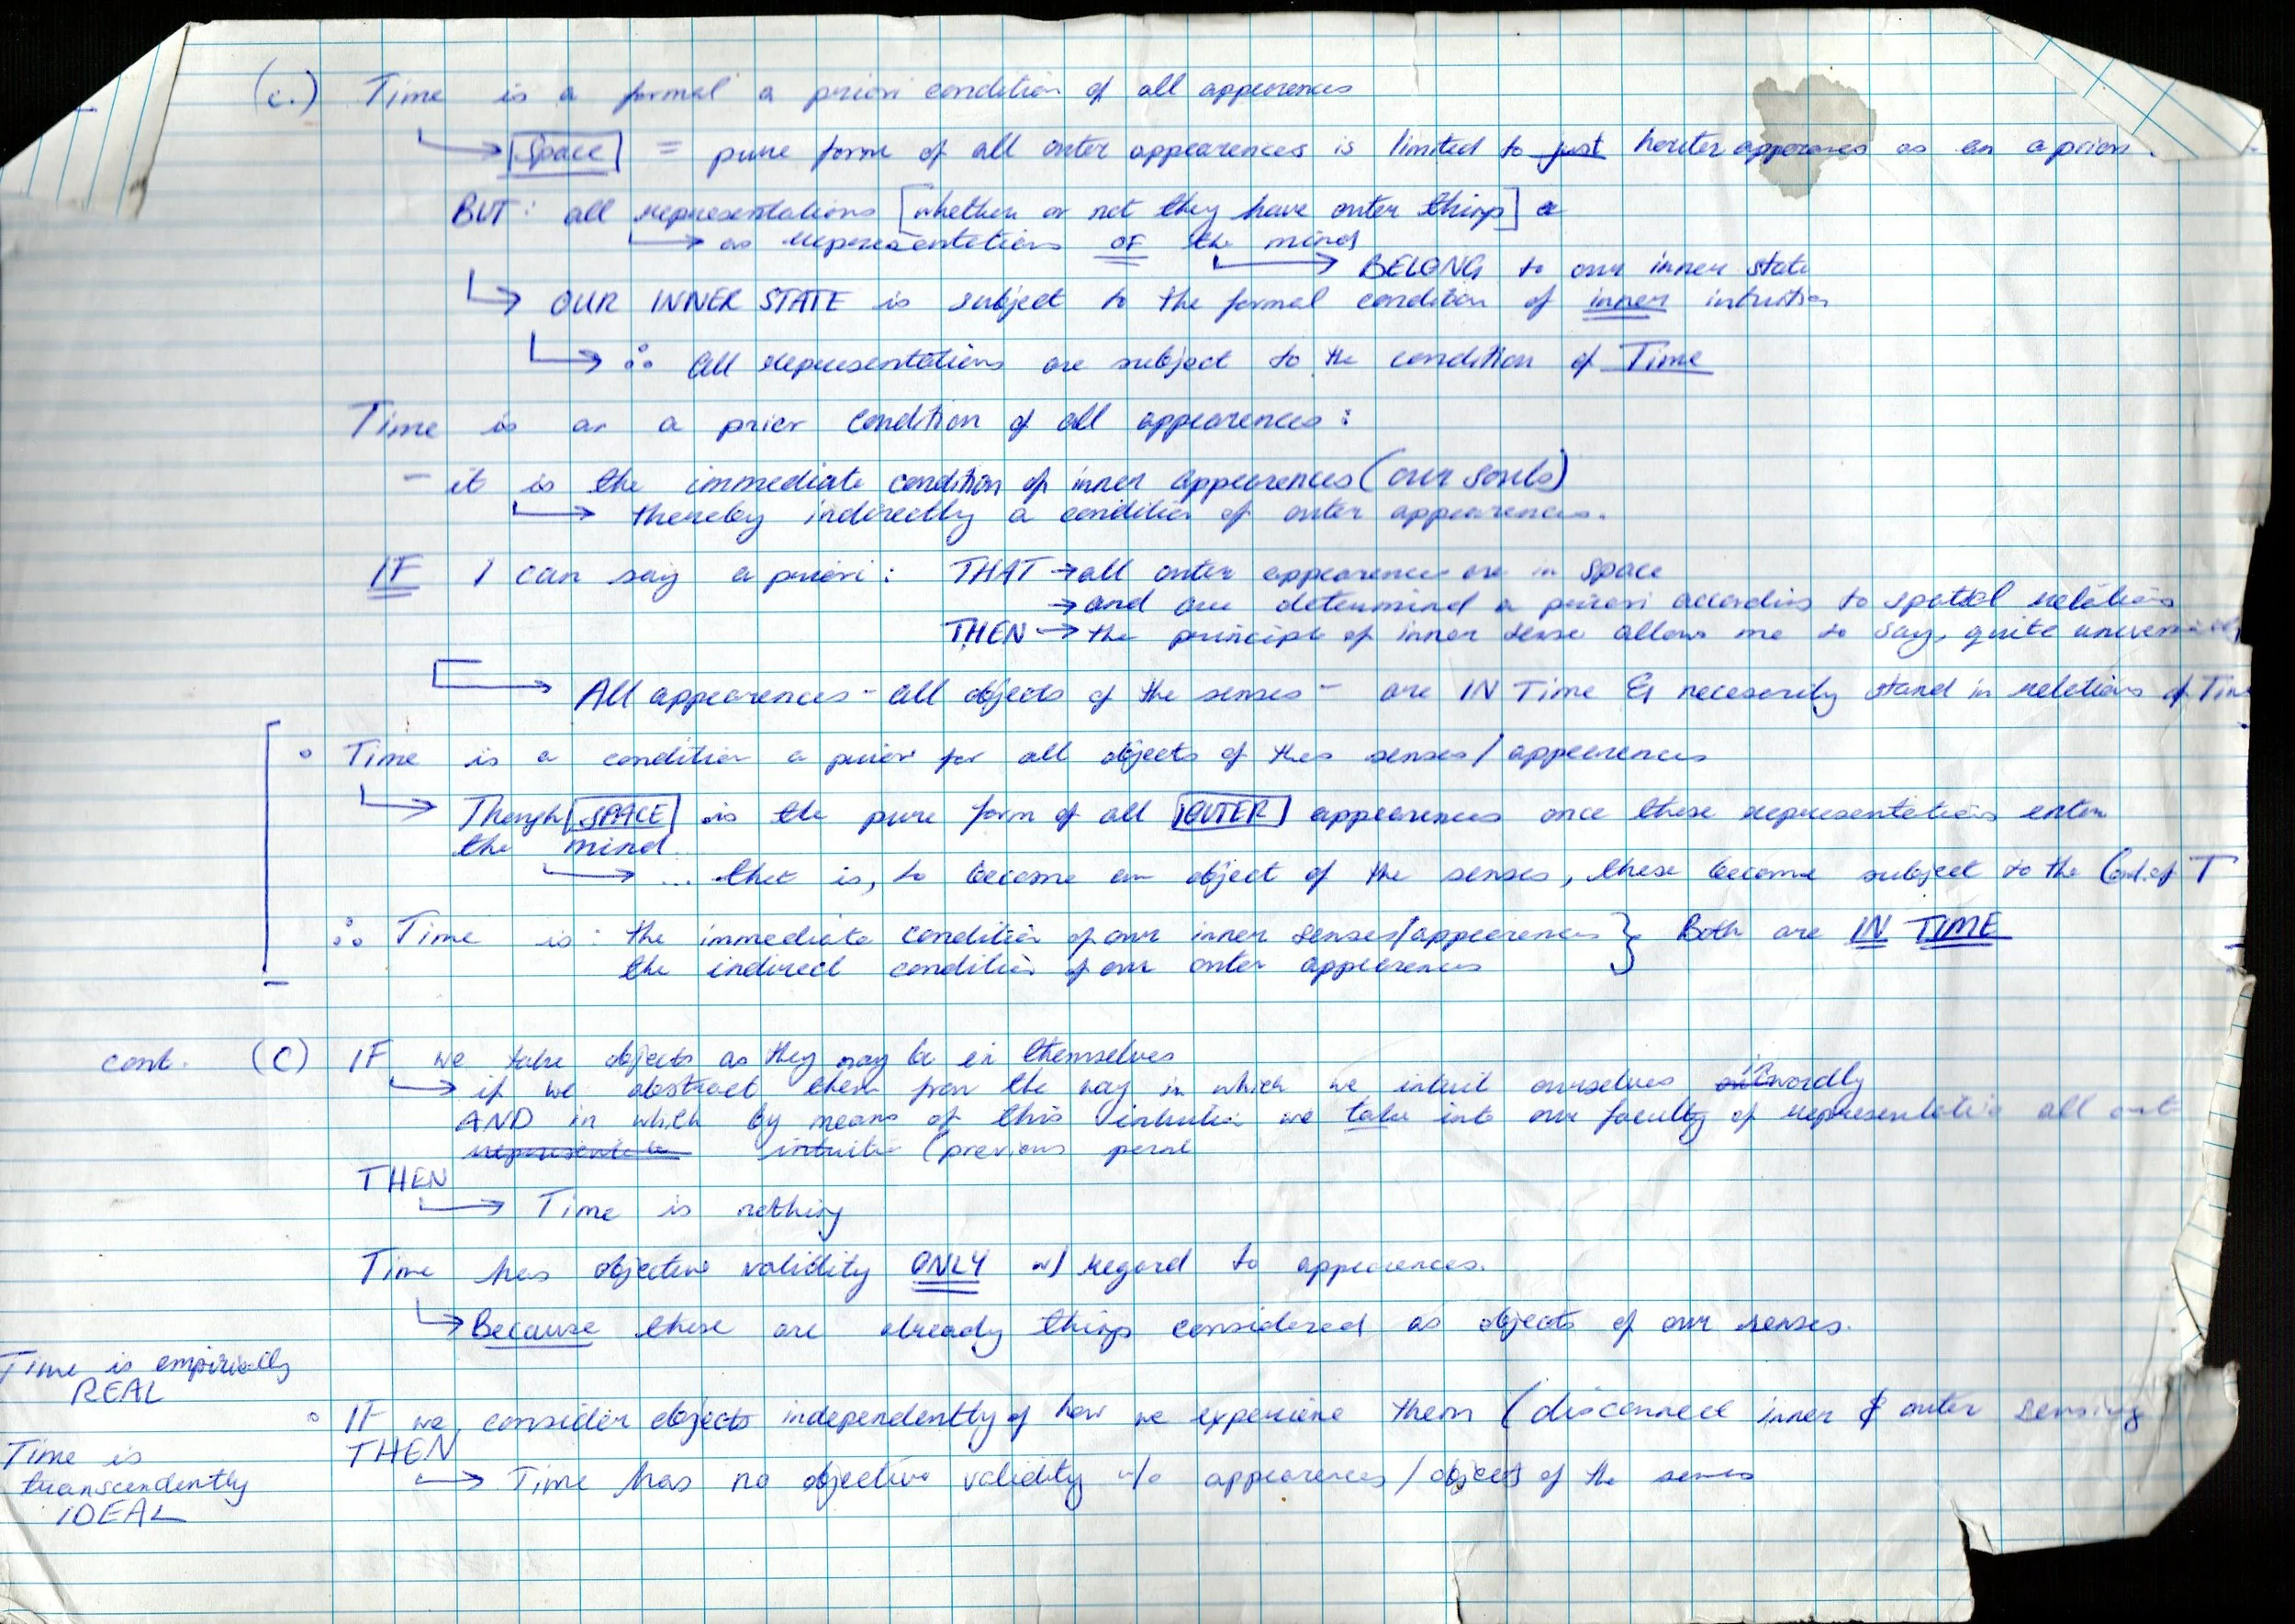 (c.) Time is a formal a priori condition of all appearences
↳ Space = pure form of all outer appearences is limited to just as an a priori
BUT: all representations [whether or not they have outer things] a
↳ as representations OF the mind
↳ BELONG to our inner state
↳ OUR INNER STATE is subject to the formal condition of inner intuition
↳ ∴ all representations are subject to the condition of Time
Time is an a prior condition of all appearences:
- it is the immediate condition of inner appearences (our souls)
↳ thereby indirectly a condition of outer appearences.
IF I can say a priori: THAT → all outer appearences are in space
→ and are determind a priori according to spatial relations
THEN → the principle of inner sense allows me to say, quite universally
↳ All appearences - all objects of the senses - are IN Time & necesserily stand in relations of Time
° Time is a condition a priori for all objects of thes senses/appearences
↳ Though [SPACE] is the pure form of all [OUTER] appearences once these representations enter
the mind
↳ ... that is, to become an object of the senses, these become subject to the Cond. of T
∴ Time is: the immediate condition of our inner senses/appearences } Both are IN TIME
the indirect condition of our outer appearences
cont. (C) IF we take objects as they may be in themselves
↳ if we abstract them from the way in which we intuit ourselves inwardly
AND in which by means of this intuition we take into our faculty of representation all out
intuitio (previous
THEN
↳ Time is nothing
Time has objective validity ONLY w/ regard to appearences.
↳ Because these are already things considered as objects of our senses.
Time is empirically
REAL
° IF we consider objects independently of how we experiene them (disconnect inner & outer sensing
THEN
↳ Time has no objective validity w/o appearences/objects of the senses
Time is
transcendently
IDEAL